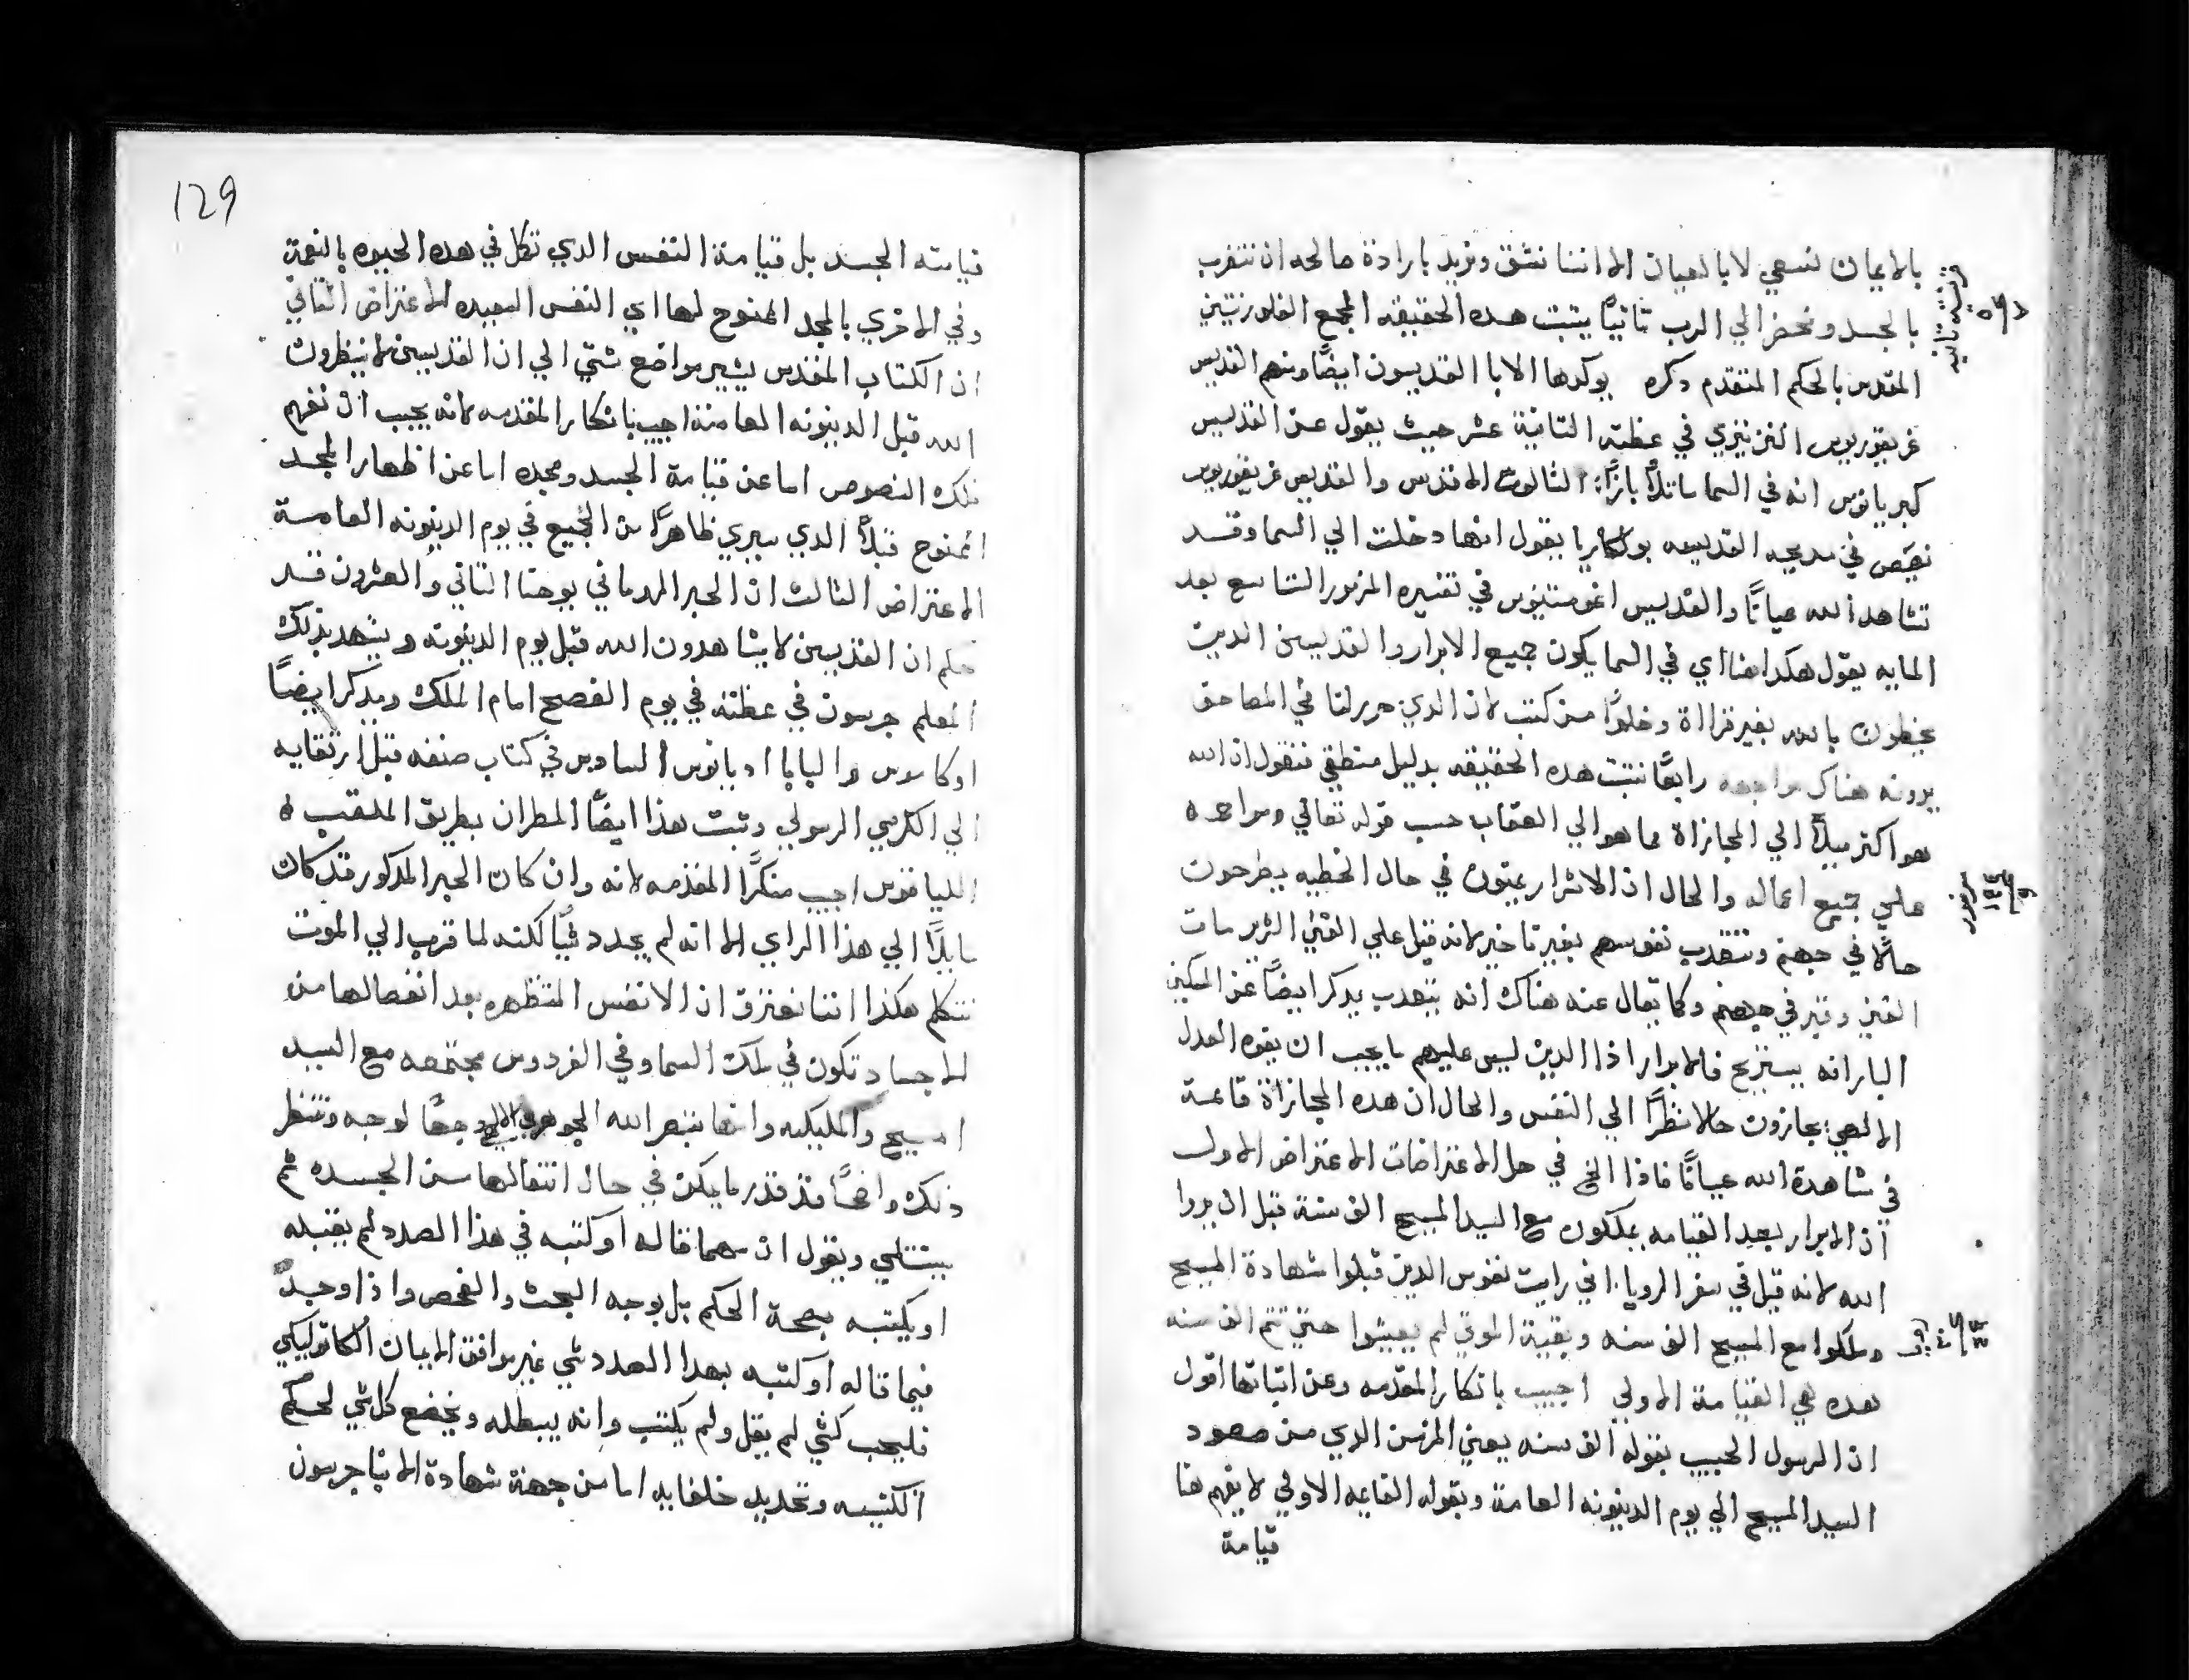 بالايمان نسعي لا بالعيان الا اننا نشق ونريد بارادة صالحه ان نتغرب
بالجسد ونحضر الي الرب ثانيًا يثبت هده الحقيقه المجمع الفلورنتيني
المقدس بالحكم المتقدم دكره يوكدها الابا القديسون ايضًا ومنهم القديس
غريغوريوس النزينزي في عظته التانية عشر حيث يقول عن القديس
كبريانوس انه في السما ماثلاً بازآ الثالوث الاقدس والقديس غريغوريوس
نيصص في مديحه القديسه بولكاريا يقول انها دخلت الي السما وقد
تشاهد الله عيانًا والقديس اغوستينوس في تفسيره المزمور التاسع بعد
المايه يقول هكدا هنا اي في السما يكون جميع الابرار والقديسين الدين
يحظون بالله بغير قرااة وخلوًا من كتب لان الدي حرر لنا في المصاحف
يرونه هناك مواجهه رابعًا نثبت هده الحقيقه بدليل منطقي فنقول ان الله
هو اكتر ميلاً الي المجازاة مما هو الي العقاب حسب قوله تعالي ومراحمه
علي جميع اعماله والحال ان الاشرار يموتون في حال الخطيه يطرحون
حالًا في جهنم وتتعدب نفوسهم بغير تاخير لانه قيل علي الغني الشرير مات
الغني وقبر في جهنم وكما يقال عنه هناك انه يتعدب يدكر ايضًا عن المسكين
البار انه يستريح فالابرار اذا الدين ليس عليهم ما يجب ان يفوه العدل
الالهي يجازون حالا نظرًا الي النفس والحال ان هده المجازاة قايمة
في مشاهدة الله عيانًا فاذا الخ في حل الاعتراضات الاعتراض الاول
ان الابرار بعد القيامه يملكون مع السيد المسيح الف سنة قبل ان يروا
الله لانه قيل في سفر الرويا اني رايت نفوس الدين قبلوا شهادة المسيح
وملكوا مع المسيح الف سنه وبقية الموتي لم يعيشوا حتي تتم الف سنه
هده هي القيامة الاولي اجيب بانكار المقدمه وعن اثباتها اقول
ان الرسول الحبيب بقوله الف سنه يعني الزمن الدي من صعود
السيد المسيح الي يوم الدينونه العامة وبقوله القيامه الاولي لا يفهم هنا
قيامة
129
قيامته الجسد بل قيامة النفس الدي تكل في هده الحيوه بالنعمة
وفي الاخري بالمجد الممنوح لها اي النفس السعيده الاعتراض الثاني
ان الكتاب المقدس يشير بمواضع شتي الي ان القديسين لا ينظرون
الله قبل الدينونه العامة اجيب بانكار المقدمه لانه يجب ان نفهم
تلك النصوص اما عن قيامة الجسد ومجده اما عن اظهار المجد
الممنوح قبلاً الدي سيري ظاهرًا من الجميع في يوم الدينونه العامة
الاعتراض الثالث ان الحبر الروماني يوحنا الثاني والعشرون قد
علم ان القديسين لا يشاهدون الله قبل يوم الدينونه ويشهد بذلك
المعلم جرسون في عظته في يوم الفصح امام الملك ويدكر ايضًا
اوكاموس والبابا اديانوس السادس في كتاب صنفه قبل ارتقايه
الي الكرسي الرسولي وثبت هذا ايضًا المطران بطريق الملقب
اللياقنوس اجيب منكرًا المقدمه لانه وان كان الحبر المدكور قد كان
مايلًا الي هذا الراي الا انه لم يحدد شيًا لكنه لما قرب الي الموت
تتكلم هكذا اننا نعترف ان الانفس المتطهره بعد انفصالها من
الاجساد تكون في ملك السما وفي الفردوس مجتمعه مع السيد
المسيح والمليكه وانها تبصر الله الجوهر الالهي وجهًا لوجه وتنظر
ذلك واضحًا قدر ما يمكن في حال انتقالها من الجسده ثم
يستتلي ويقول ان مهما قاله او كتبه في هذا الصدد لم يقبله
او يكتبه بصحة الحكم بل بوجه البحث والفحص واذا وجد
فيما قاله او كتبه بهدا الصدد شي غير موافق الايمان الكاتوليكي
فليحب كشي لم يقل ولم يكتب وانه يبطله ويخضع كل شي لحكم
الكنيسه وتحديد خلفايه اما من جهة شهادة الابا جرسون